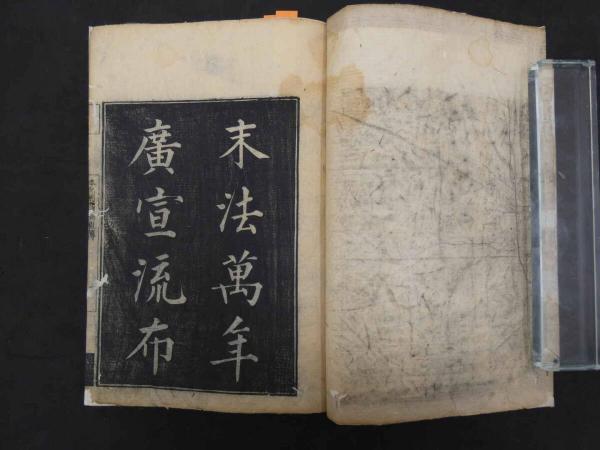 末法萬年
廣宣流布